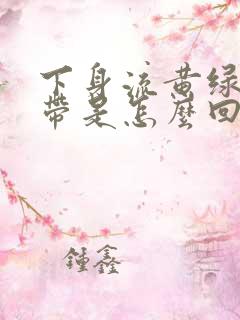 下身流黄绿
帶是怎麼回
鍾鑫